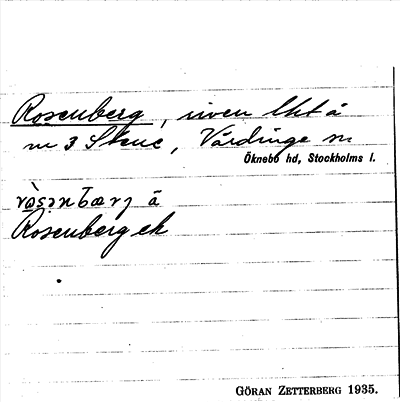 Rosenberg, även lht å
nr 3 Stene, Vårdinge sn
Öknebo hd, Stockholms l.
Rosenberg ek
GÖRAN ZETTERBERG 1935.